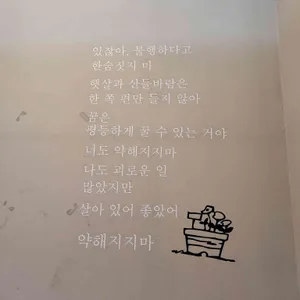 있잖아, 불행하다고
한숨짓지 마
햇살과 산들바람은
한 쪽 편만 들지 않아
꿈은
평등하게 꿀 수 있는 거야
너도 약해지지마
나도 괴로운 일
많았지만
살아 있어 좋았어
약해지지마